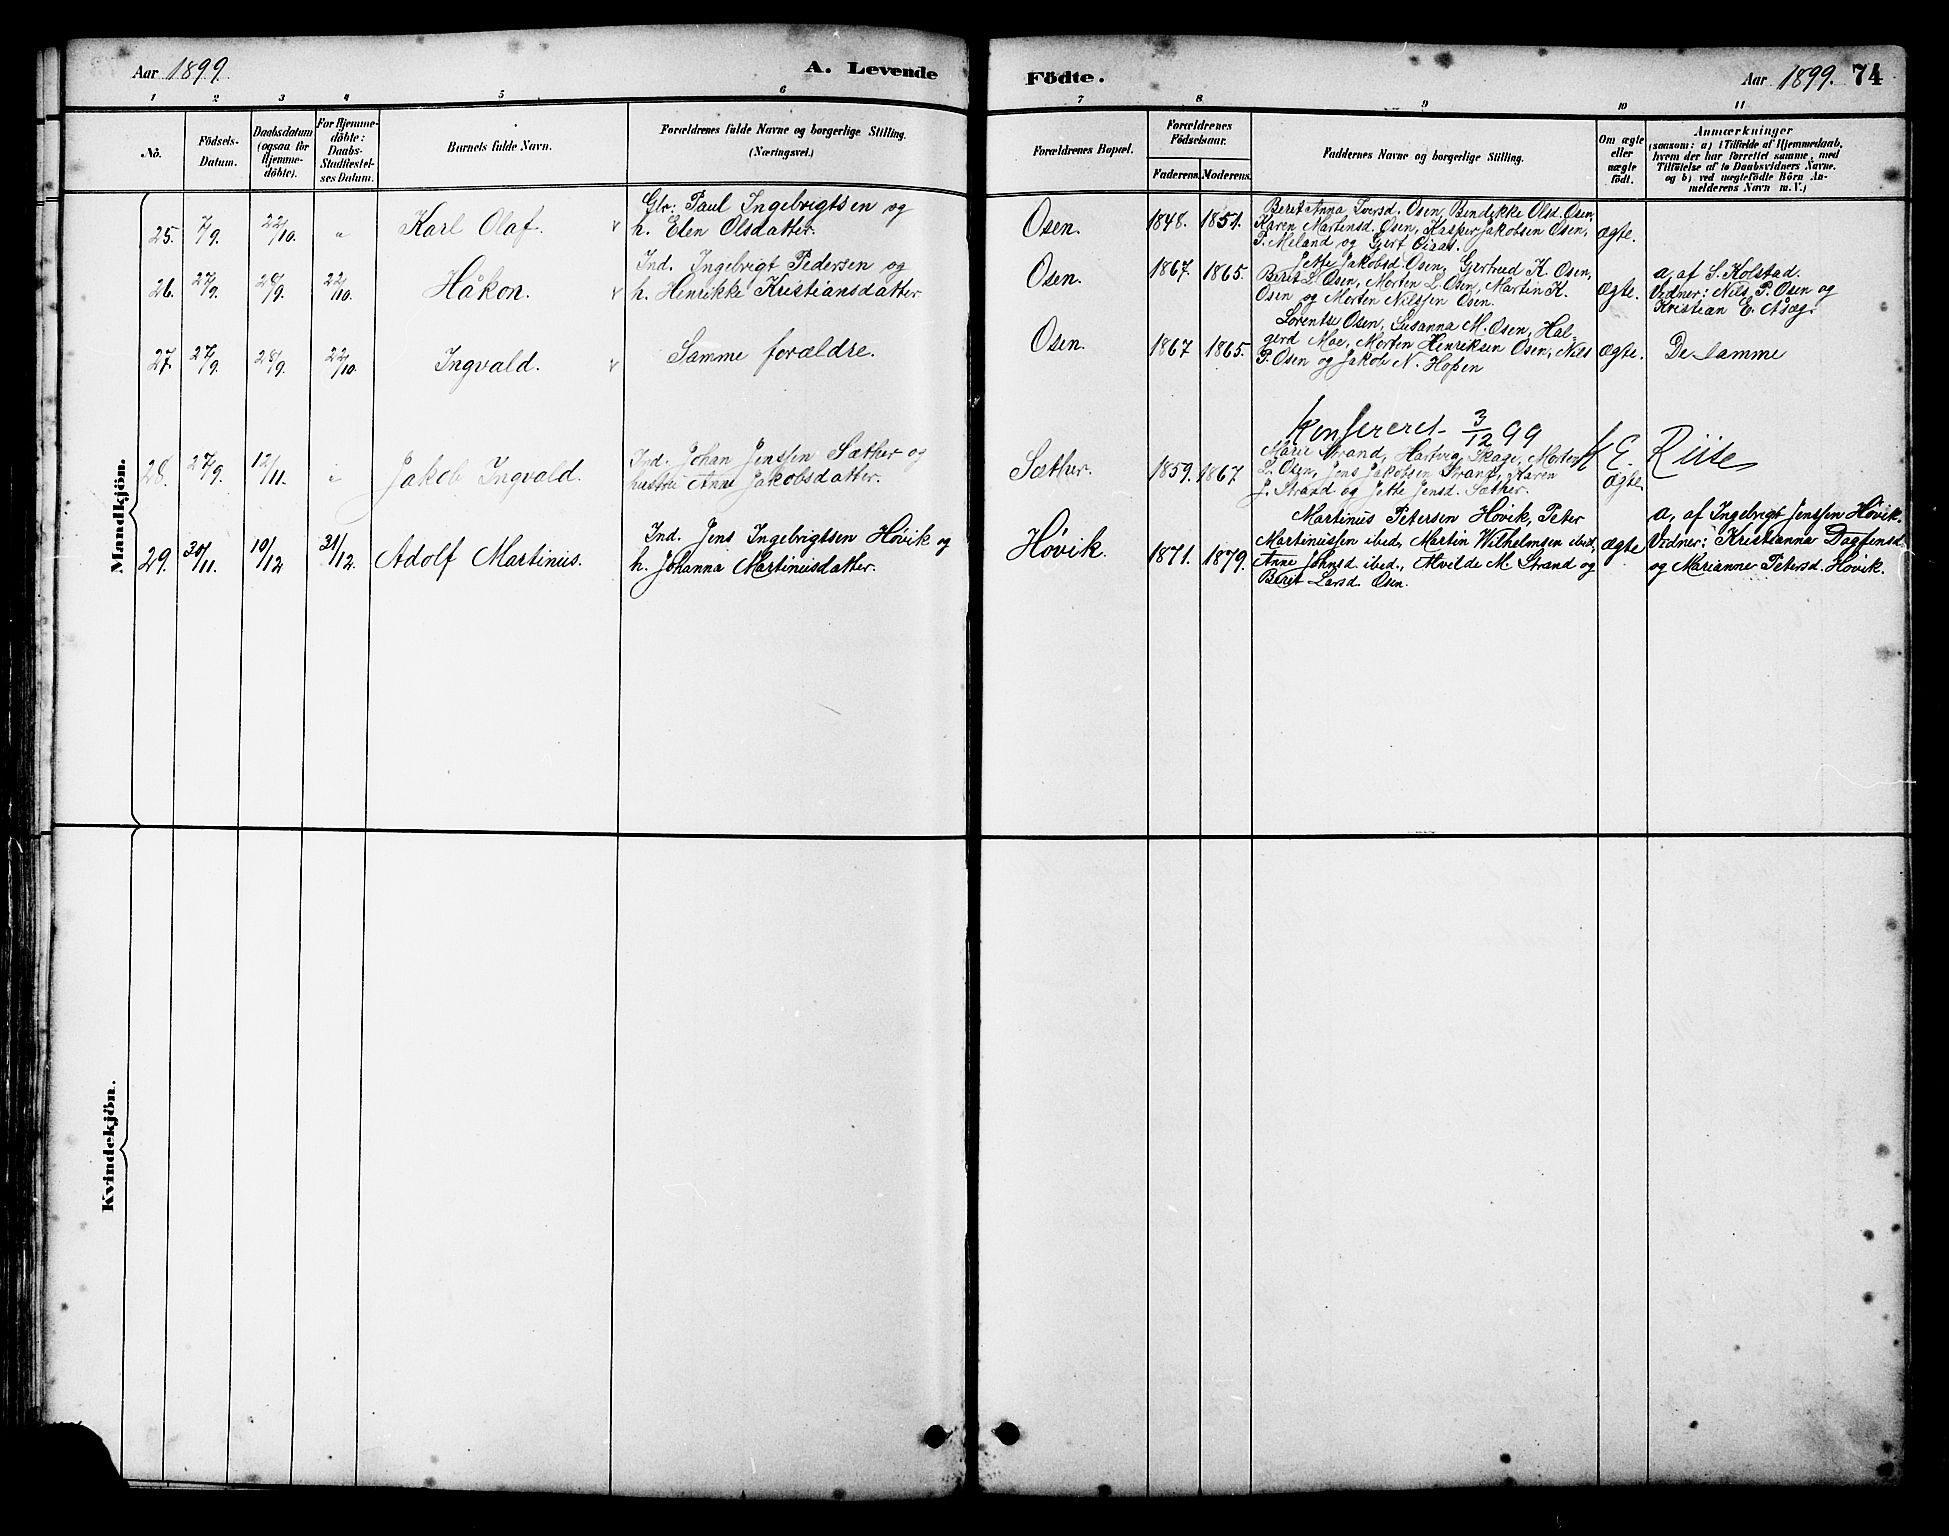 Aar 1899.
A. Levende
Födte.
Aar 1899. 74
1 2 3 4 5 6 7 8 9 10 11
No.
Födsels-
Datum.
Daabsdatum
(ogsaa for
Hjemme-
döbte).
For Hjemme-
döbte:
Daabs-
Stadfæstel-
ses Datum.
Barnets fulde Navn.
Forældrenes fulde Navne og borgerlige Stilling.
(Næringsvei.)
Forældrenes Bopæl.
Forældrenes
Födselsaar.
Faderens. Moderens.
Faddernes Navne og borgerlige Stilling.
Om ægte
eller
uægte
födt.
Anmærkninger
(saasom: a) i Tilfælde af Hjemmedaab,
hvem der har forrettet samme, med
Tilföielse af to Daabsvidners Navne.
og b) ved uægtefödte Börn An-
melderens Navn m. V.)
Mandkjön.
25. 7/9. 22/10. „ Karl Olaf.
Gbr. Paul Ingebrigtsen og
h. Elen Olsdatter.
Osen. 1848. 1851.
Beret Anna Iversd. Osen, Bendikke Olsd. Osen,
Karen Martensd. Osen, Kasper Jakobsen Osen,
P. Meland og Gert Oiaas.
ægte.
26. 27/9. 28/9. 22/10. Håkon.
Ind. Ingebrigt Pedersen og
h. Henrikke Kristiansdatter
Osen. 1867. 1865.
Jette Jakobsd. Osen, Gertrud K. Osen,
Beret L. Osen, Morten L. Osen, Martin K.
Osen og Morten Nilssen Osen.
ægte.
a, af S. Kolstad.
Vidner: Nils P. Osen og
Kristian E. Åsæg.
27. 27/9. 28/9. 22/10. Ingvald.
Samme forældre.
Osen. 1867 1865.
Lorents Osen, Susanna M. Osen, Hal-
gerd Moe, Morten Henriksen Osen, Nils
P. Osen og Jakob N. Hopen
ægte.
De samme
Konfereret 3/12 99
K E. Riise
28. 27/9. 12/11. „ Jakob Ingvald.
Ind. Johan Jenssen Sæther og
hustru Anne Jakobsdatter.
Sæther. 1859. 1867
Marie Strand, Hartvig Skage, Morten
L. Osen, Jens Jakobsen Strand, Karen
J. Strand og Jette Jensd. Sæther.
ægte.
29. 30/11. 10/12 31/12. Adolf Martinus.
Ind. Jens Ingebrigtsen Høvik og
h. Johanna Martinusdatter.
Høvik. 1871. 1879.
Martinus Petersen Høvik, Peter
Martinussen ibed, Martin Wilhelmsen ibed,
Anne Johnsd ibed., Alvilde M. Strand og
Beret Larsd. Osen.
ægte
a, af Ingebrigt Jenssen Høvik.
Vidner: Kristianna Dagfinsd.
og Marianne Petersd. Høvik.
Kvindekjön.